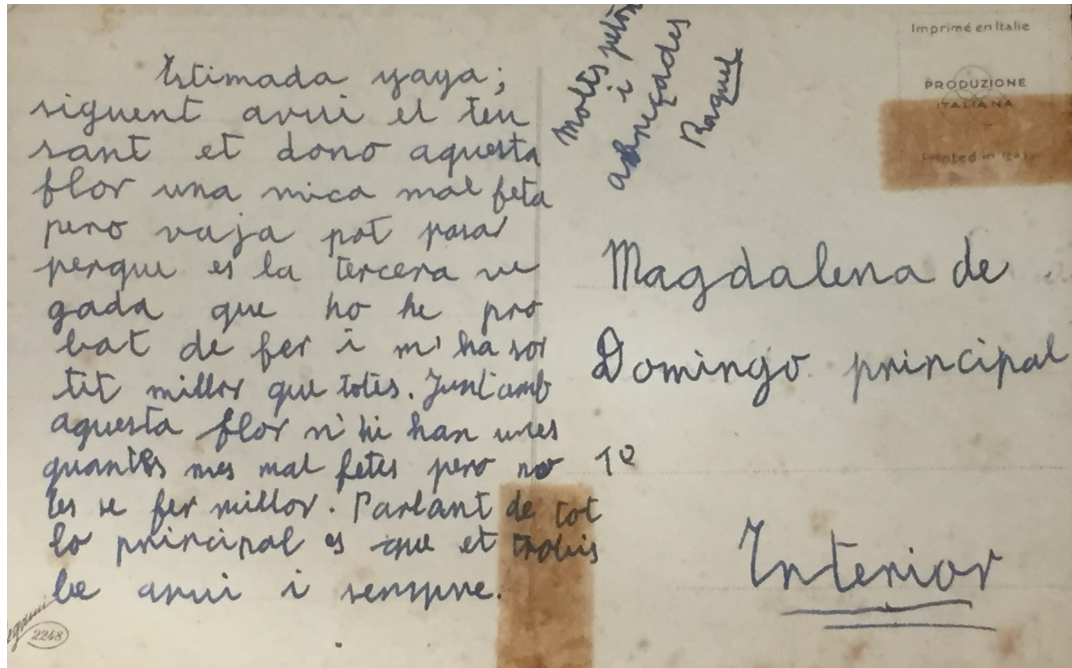 Estimada yaya;
siguent avui el teu
sant et dono aquesta
flor una mica mal feta
pero vaja pot pasar
perque es la tercera ve
gada que ho he pro
bat de fer i m'ha sor
tit millor que totes. Junt amb
aquesta flor n'hi han unes
quantes mes mal fetes pero no
les se fer millor. Parlant de tot
lo principal es que et trobis
be avui i sempre.
Molts petons
i
abraçades
Raquel
Imprimé en Italie
PRODUZIONE
ITALIANA
Printed in Italy
Magdalena de
Domingo principal
1º
Interior
2248